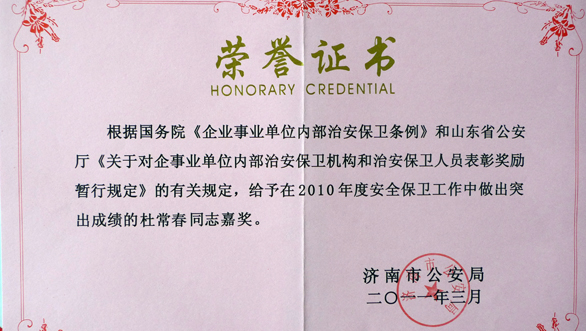 荣誉证书
HONORARY CREDENTIAL
根据国务院《企业事业单位内部治安保卫条例》和山东省公安
厅《关于对企事业单位内部治安保卫机构和治安保卫人员表彰奖励
暂行规定》的有关规定，给予在2010年度安全保卫工作中做出突
出成绩的杜常春同志嘉奖。
济南市公安局
二〇一一年三月
济南市公安局